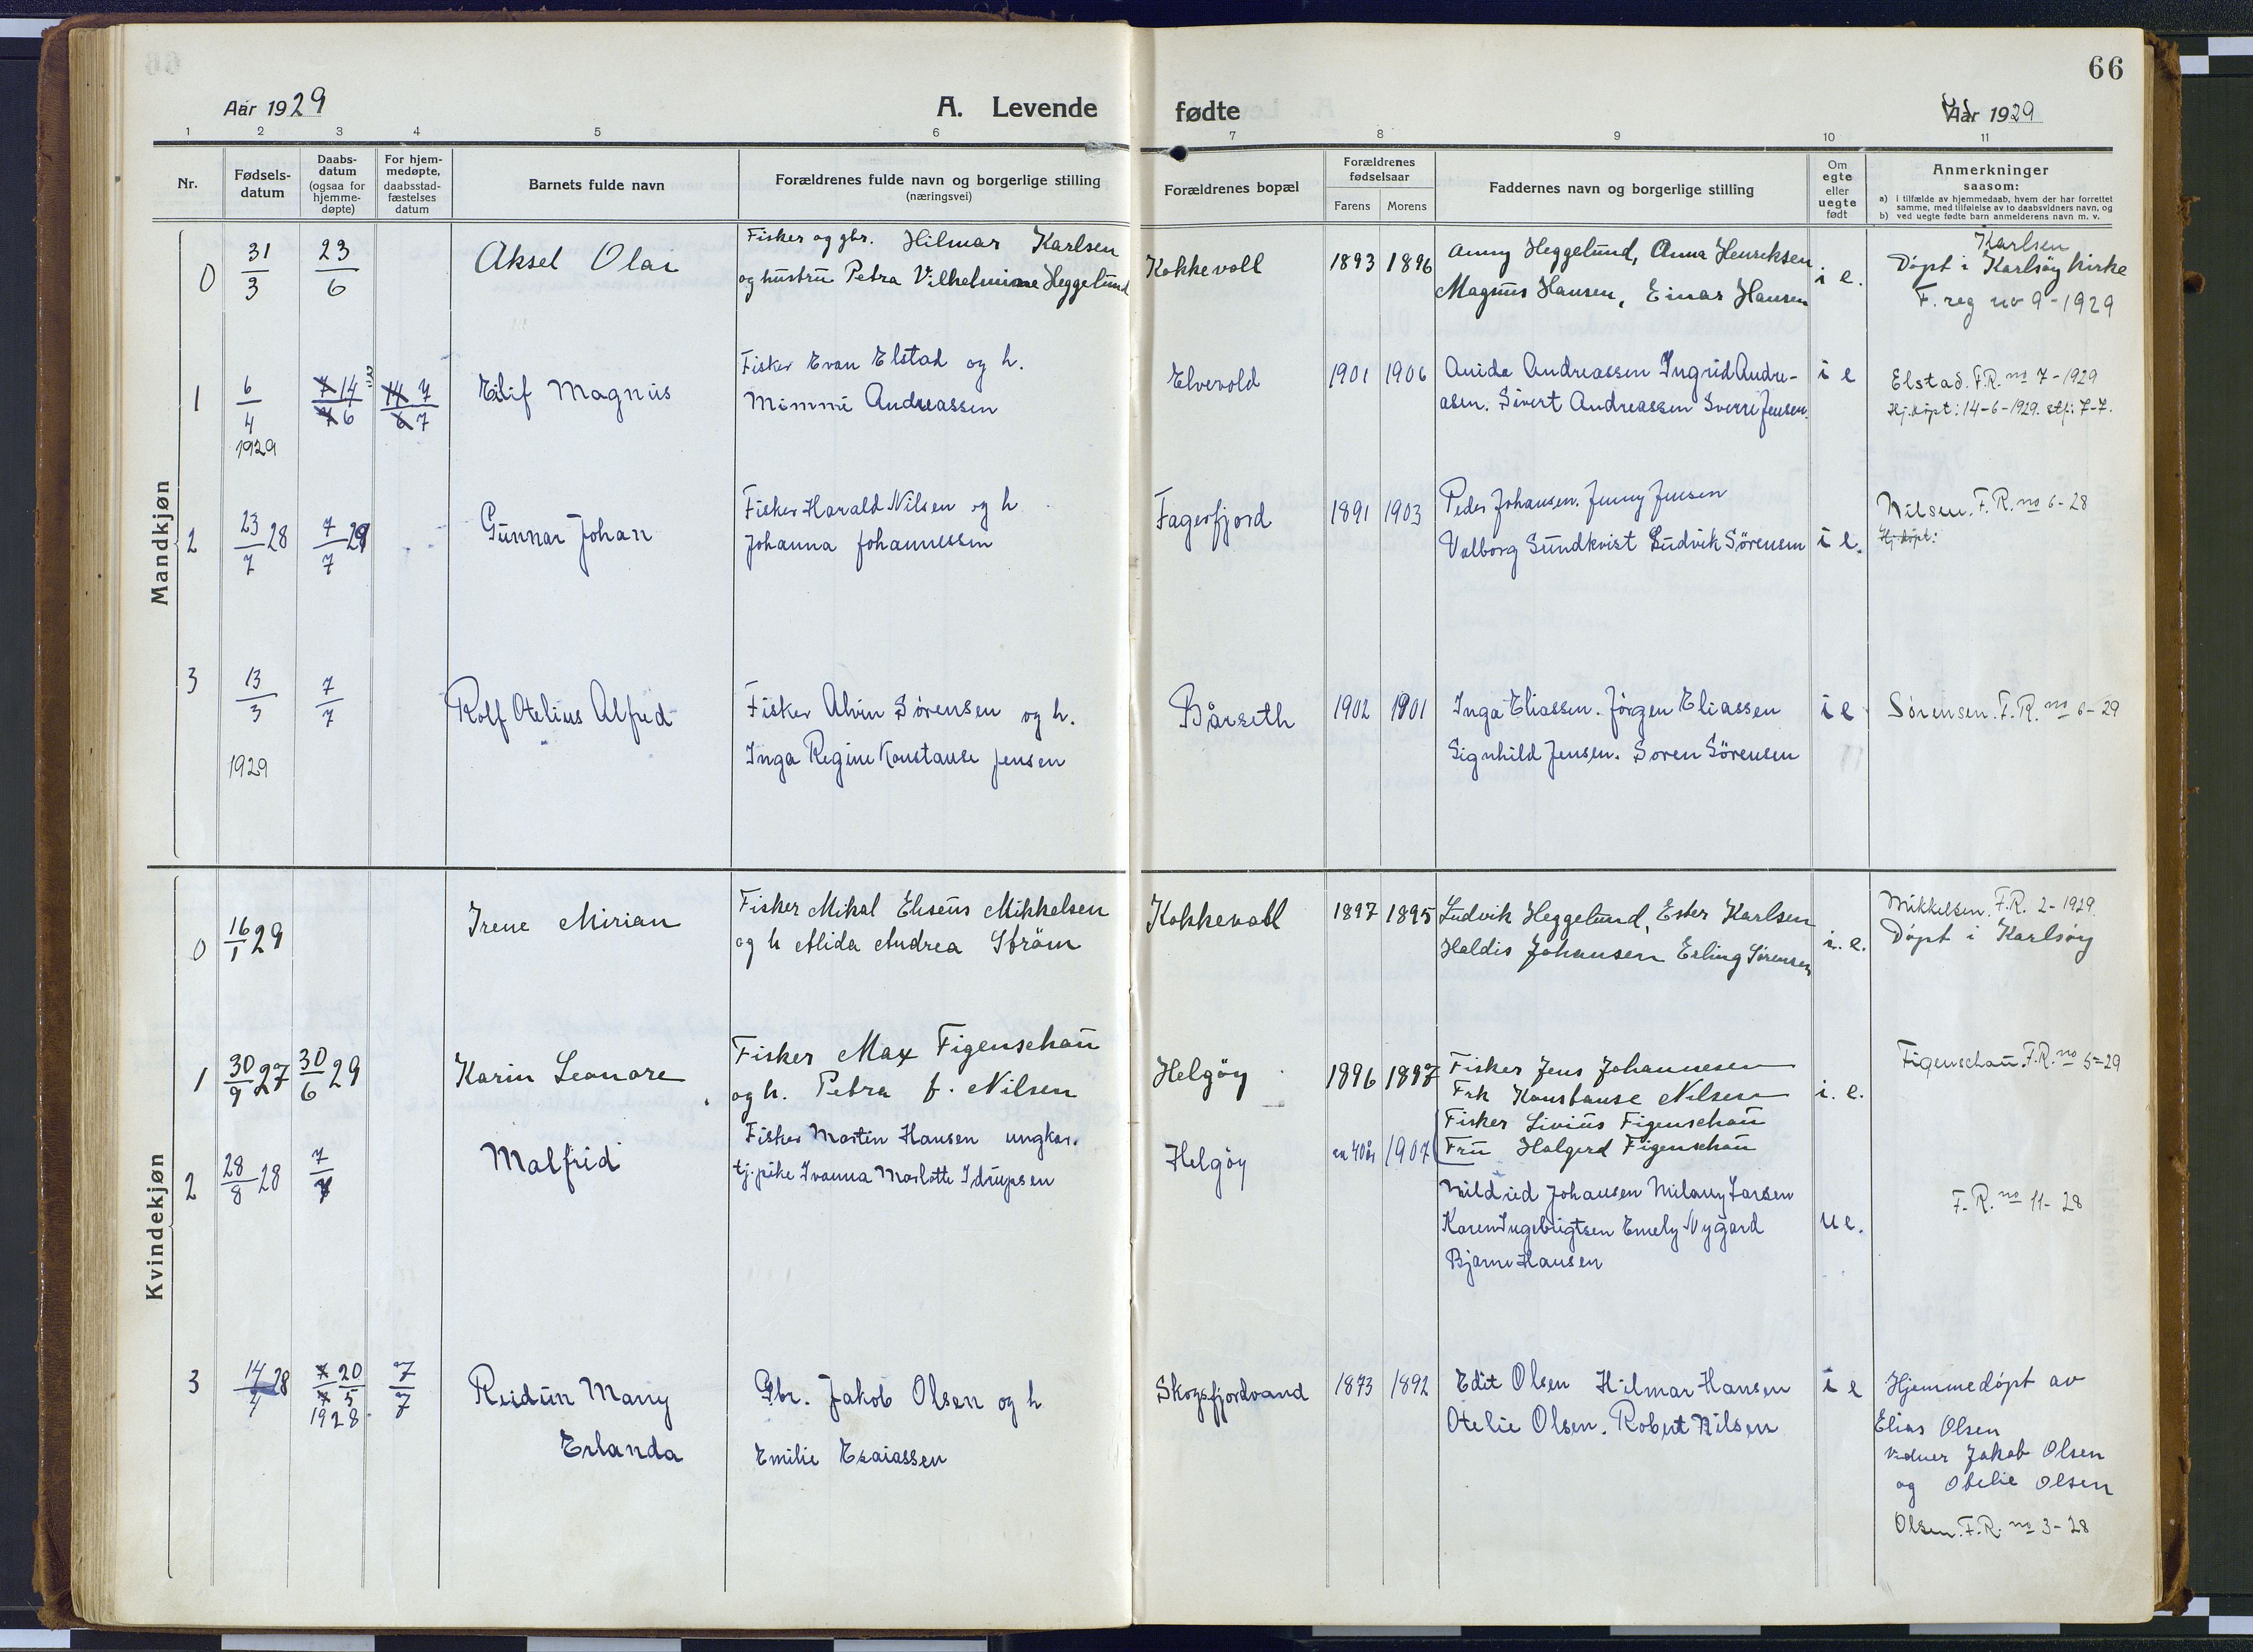 66
Aar 1929
A. Levende
fødte
Aar 1929
1 2 3 4 5 6 7 8 9 10 11
Nr.
Fødsels-
datum
Daabs-
datum
(ogsaa for
hjemme-
døpte)
For hjem-
medøpte,
daabsstad-
fæstelses
datum
Barnets fulde navn
Forældrenes fulde navn og borgerlige stilling
(næringsvei)
Forældrenes bopæl
Forældrenes
fødselsaar
Farens Morens
Faddernes navn og borgerlige stilling
Om
egte
eller
uegte
født
Anmerkninger
saasom:
a) i tilfælde av hjemmedaab, hvem der har forrettet
samme, med tilføielse av to daabsvidners navn, og
b) ved uegte fødte barn anmelderens navn m. v.
Mandkjøn
0 31/3 23/6 Aksel Olai
Fisker og gbr. Hilmar Karlsen
og hustru Petra Vilhelmine Heggelund
Kokkevoll 1893 1896
Anny Heggelund, Anna Henriksen
Magnus Hansen, Einar Hansen
i e.
Karlsen
Døpt i Karlsøy kirke
F. reg no 9-1929
1 6/4 1929 14/6 7/7 Eilif Magnus
Fisker Evan Elstad og h.
Mimmi Andreassen
Elvevold 1901 1906
Anida Andreassen Ingrid Andre-
asen. Sivert Andreassen Sverre Jensen.
i e
Elstad. F.R. no 7-1929
Hj.døpt: 14-6-1929. stf: 7-7.
2 23/7 28 7/7 29 Gunnar Johan
Fisker Harald Nilsen og h
Johanna Johannessen
Fagerfjord 1891 1903
Peder Johansen. Jenny Jensen
Valborg Sundkvist Ludvik Sørensen
i e.
Nilsen. F.R. no 6-28
Hj.døpt:
3 13/3 1929 7/7 Rolf Otelius Alfred
Fisker Alvin Sørensen og h.
Inga Regine Konstanse Jensen
Bårseth 1902 1901
Inga Eliassen. Jørgen Eliassen
Signhild Jensen. Soren Sörensen
i e
Sörensen. F.R. no 6-29
Kvindekjøn
0 16/1 29 Irene Mirian
Fisker Mikal Eliseus Mikkelsen
og h Alida Andrea Ström
Kokkevoll 1897 1895
Ludvik Heggelund, Ester Karlsen
Haldis Johansen Erling Sörensen
i. e.
Mikkelsen. F.R. 2-1929.
Døpt i Karlsöy
1 30/9 27 30/6 29 Karin Leonore
Fisker Max Figenschau
og h. Petra f. Nilsen
Helgöy 1896 1897
Fisker Jens Johannesen
Frk Konstanse Nilsen
Fisker Livius Figenschau
Fru Halgerd Figenschau
i. e.
Figenschau. F.R. no 5-29
2 28/8 28 7/7 Malfrid
Fisker Martin Hansen ungkar.
tj. pike Ivanna Marlotte Idrupsen
Helgöy ca 40 år 1907
Mildrid Johansen Milany Larsen
Karen Ingebrigtsen Emely Nygård
Bjarne Hansen
u e.
F.R. no 11-28
3 14/4 28 20/5 1928 7/7 Reidun Mary
Erlanda
Gbr. Jakob Olsen og h
Emilie Esaiassen
Skogsfjordvand 1873 1892
Edit Olsen Hilmar Hansen
Otelie Olsen. Robert Nilsen
i e
Hjemmedöpt av
Elias Olsen
Vidner Jakob Olsen
og Otelie Olsen
Olsen. F.R. no 3-28